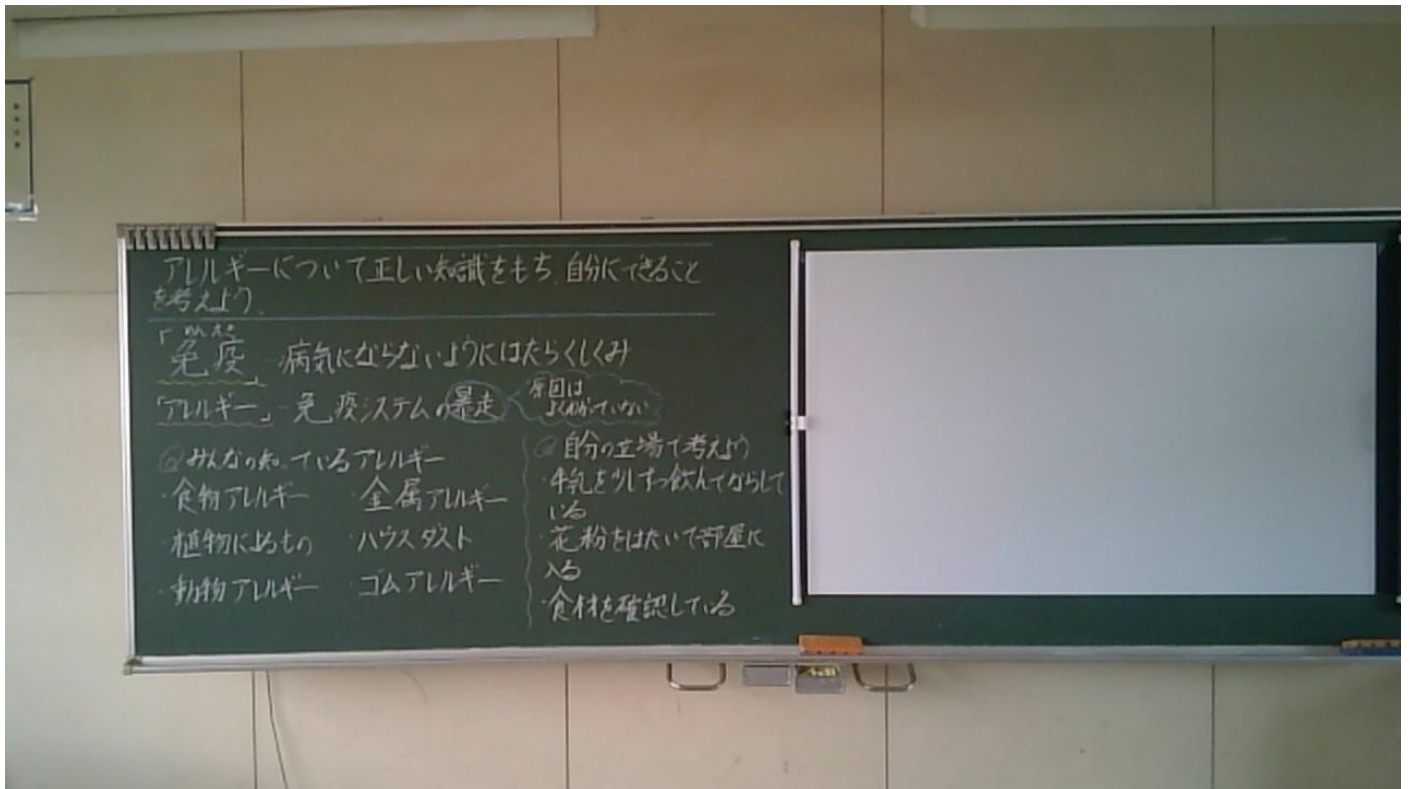 アレルギーについて正しい知識をもち、自分にできること
を考えよう。
めんえき
「免疫」…病気にならないようにはたらくしくみ
「アレルギー」…免疫システムの暴走
原因は
よくわかっていない
◎みんなの知っているアレルギー
・食物アレルギー ・金属アレルギー
・植物によるもの ・ハウスダスト
・動物アレルギー ・ゴムアレルギー
◎自分の立場で考えよう
・牛乳を少しずつ飲んでならして
いる
・花粉をはたいて部屋に
入る
・食材を確認している